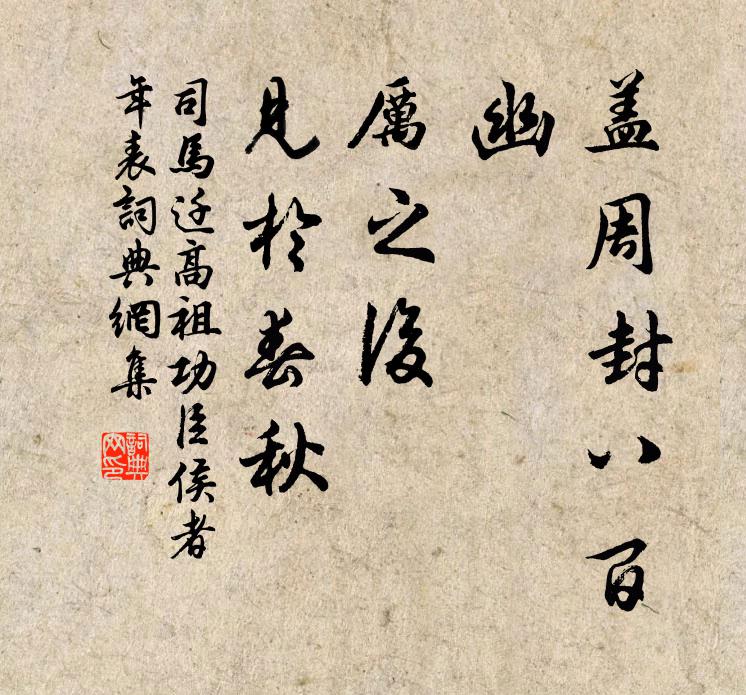 盖周封八百
幽
厲之後
見於春秋
司馬迁高祖功臣侯者
年表詞典網集
詞典
网印